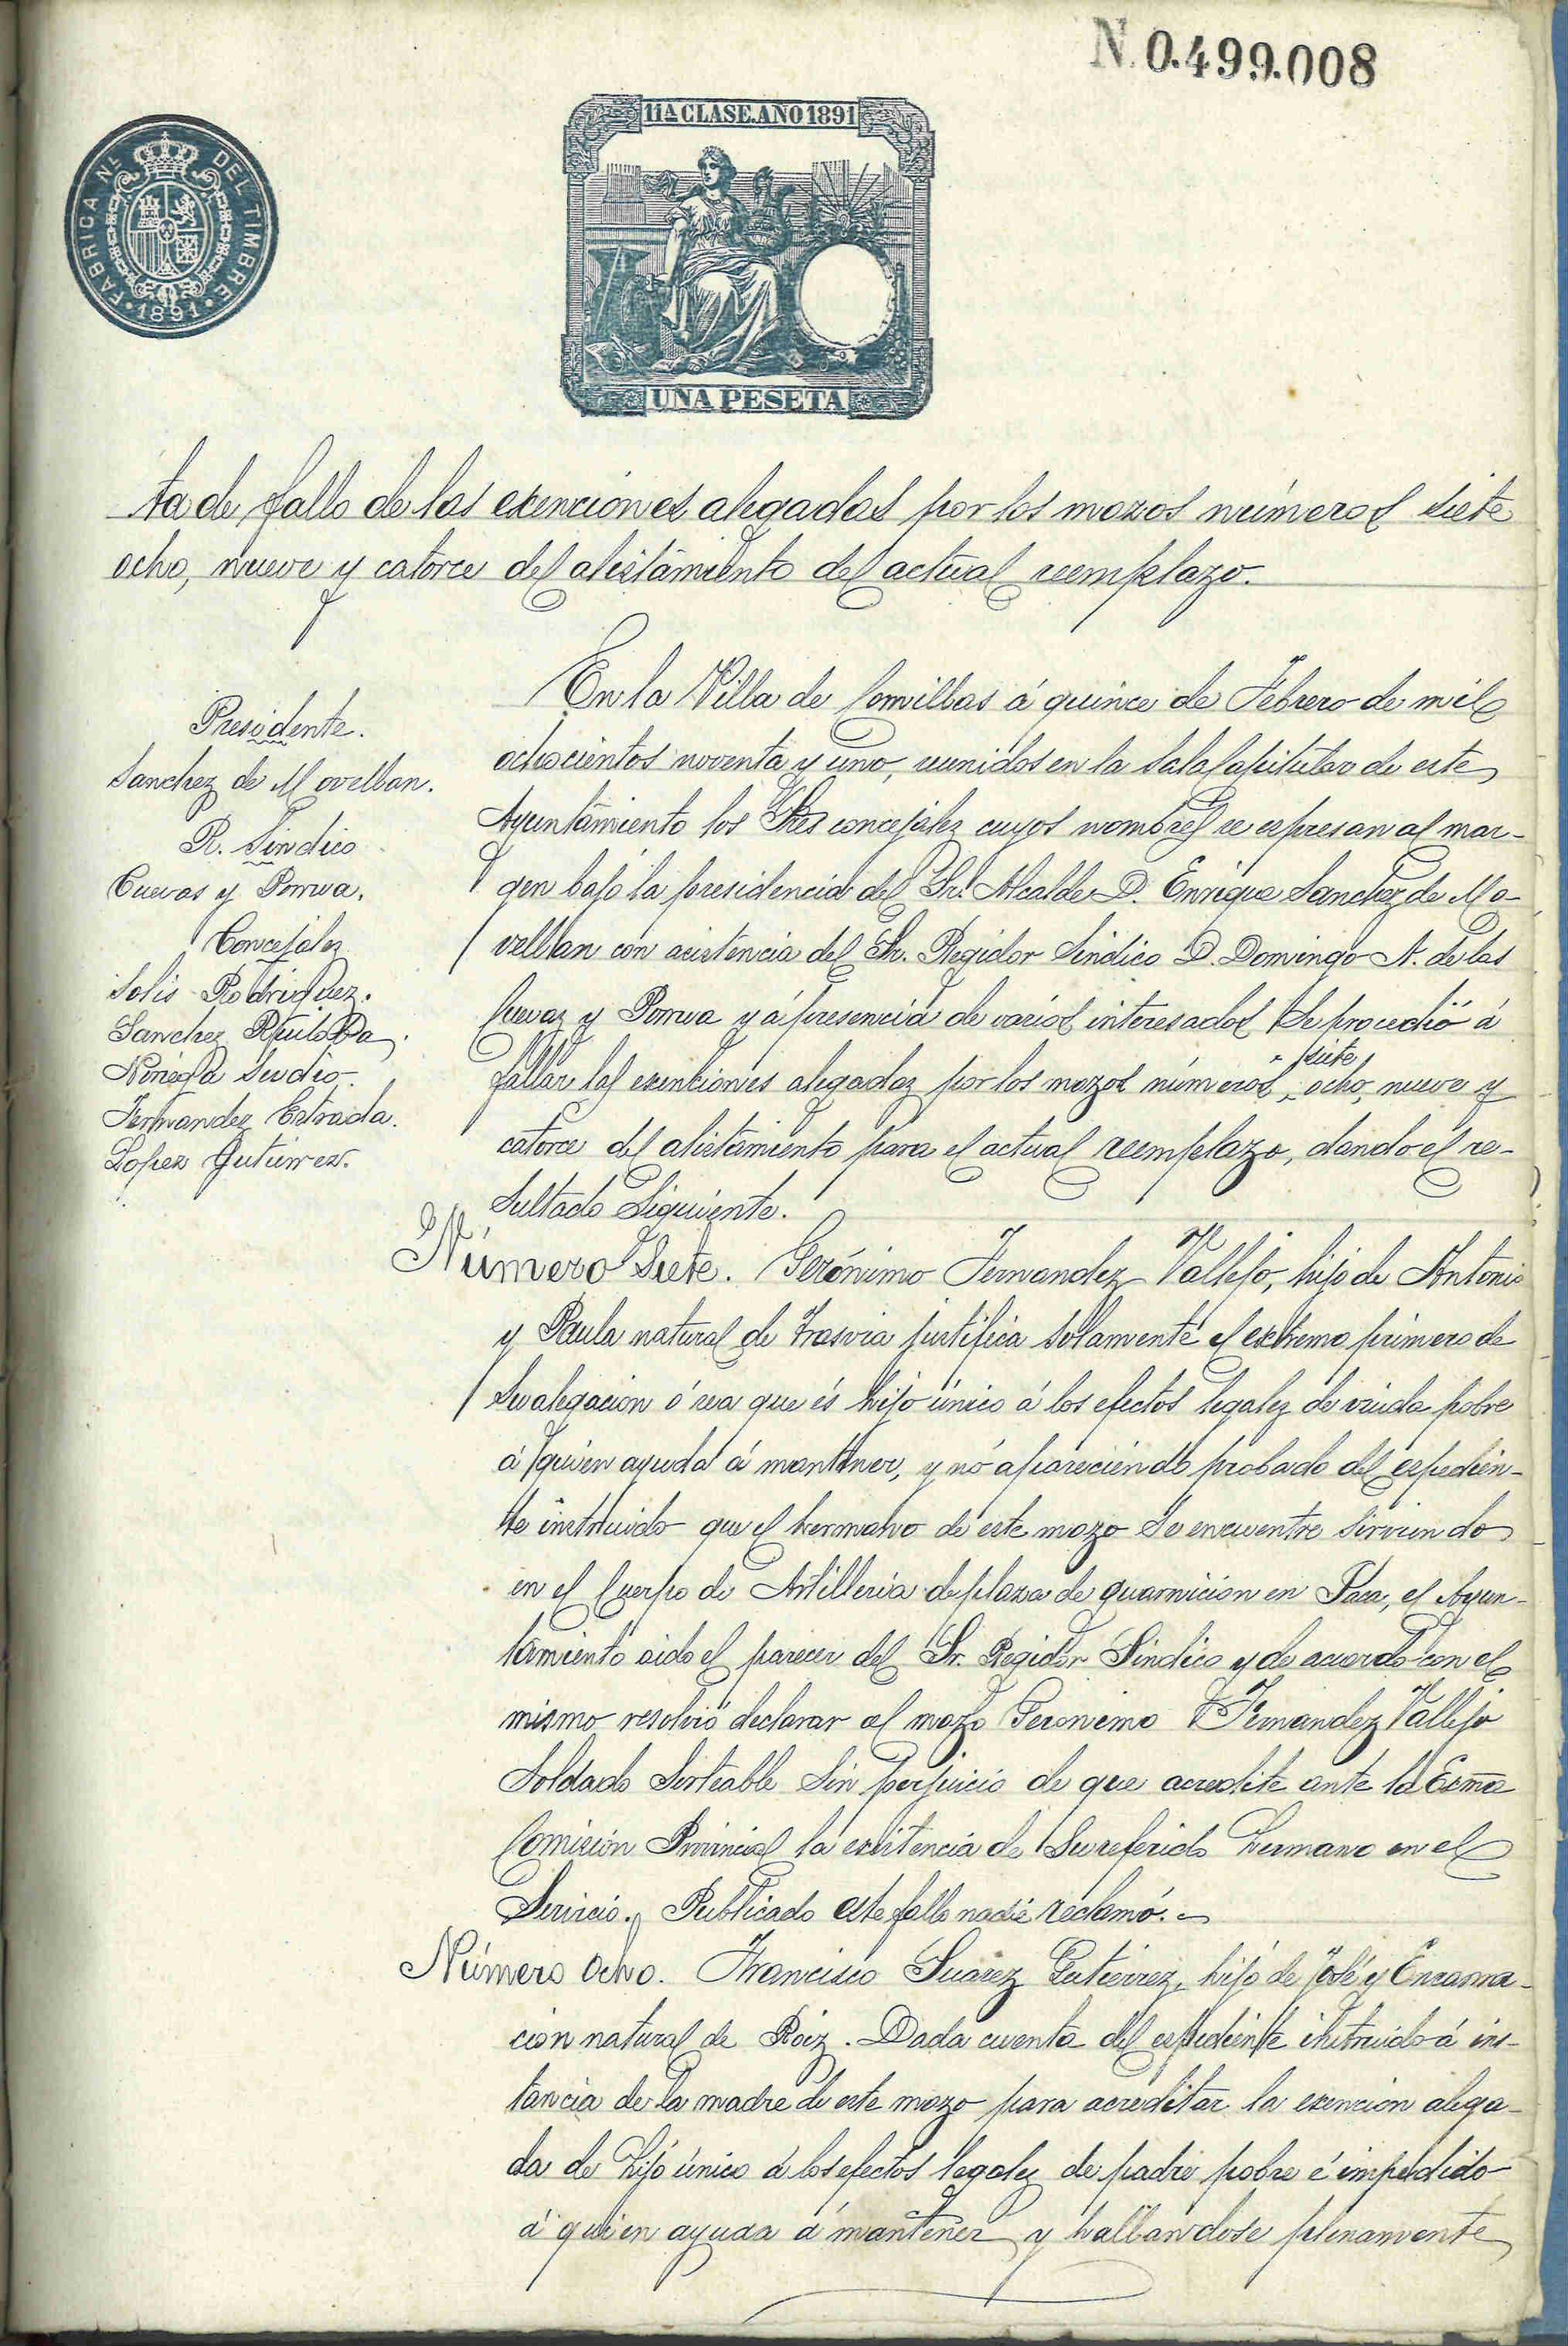 N. 0.499.008
11ª CLASE. AÑO 1891
FABRICA NL DEL TIMBRE
1891
UNA PESETA
ta de fallo de las exenciones alegadas por los mozos números siete
ocho, nueve y catorce del alistamiento del actual reemplazo.
Presidente.
Sanchez de Movellan.
R. Sindico
Cuevas y Porrua.
Concejales
Solis Rodriguez.
Sanchez
Noriega
Fernandez Estrada.
Lopez Gutierrez.
En la Villa de Comillas á quince de Febrero de mil
ochocientos noventa y uno, reunidos en la Sala Capitular de este
Ayuntamiento los Sres concejales cuyos nombres se espresan al mar-
gen bajo la presidencia del Sr. Alcalde D. Enrique Sanchez de Mo-
vellan con asistencia del Sr. Regidor Sindico D. Domingo A. de las
Cuevas y Porrua y á presencia de varios interesados se procedió á
fallar las exenciones alegadas por los mozos números siete, ocho, nueve y
catorce del alistamiento para el actual reemplazo, dando el re-
sultado siguiente.
Número Siete. Gerónimo Fernandez Vallejo, hijo de Antonio
y Paula natural de Trasvia justifica solamente el extremo primero de
su alegacion ó sea que és hijo único á los efectos legales de viuda pobre
á quien ayuda á mantener, y nó apareciendo probado del espedien-
te instruido que el hermano de este mozo se encuentre sirviendo
en el Cuerpo de Artilleria de plaza de guarnicion en Jaca, el Ayun-
tamiento oido el parecer del Sr. Regidor Sindico y de acuerdo con el
mismo resolvió declarar al mozo Geronimo Fernandez Vallejo
Soldado Sorteable sin perjuicio de que acredite ante la Exma
Comision Provincial la existencia de su referido hermano en el
Servicio. Publicado este fallo nadie reclamó.
Número Ocho. Francisco Suarez Gutierrez, hijo de José y Encarna-
cion natural de Roiz. Dada cuenta del espediente instruido á ins-
tancia de la madre de este mozo para acreditar la exencion alega-
da de hijo único á los efectos legales de padre pobre é impedido
á quien ayuda á mantener y hallandose plenamente